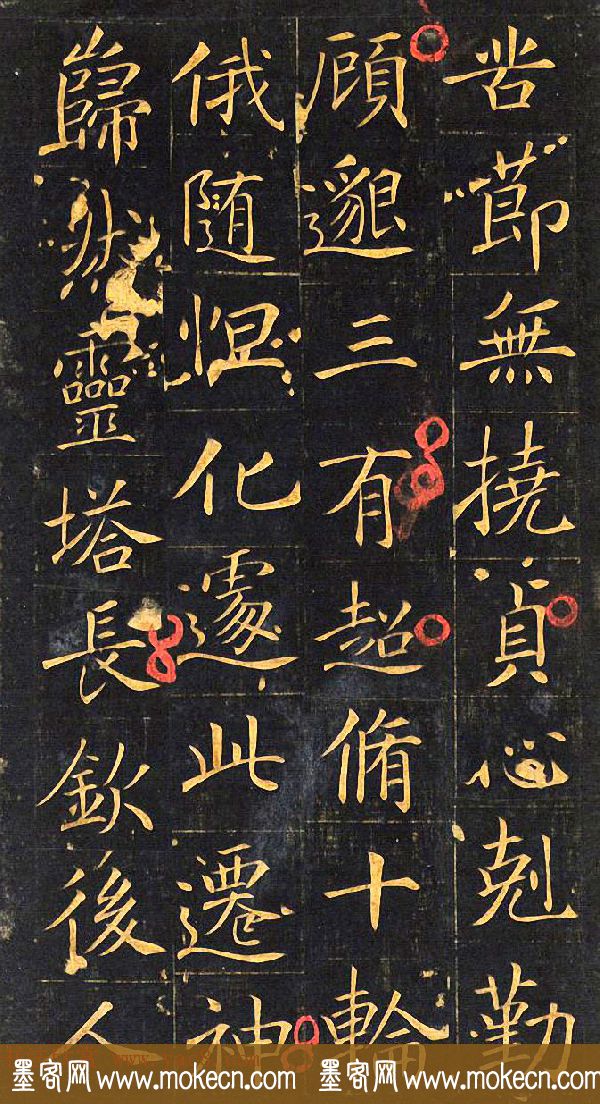 苦節無撓貞心剋勤
顧邈三有超脩十輪
俄随恒化遽此遷神
巋然靈塔長欽後人
墨客网 www.mokecn.com 墨客网 www.mokecn.com